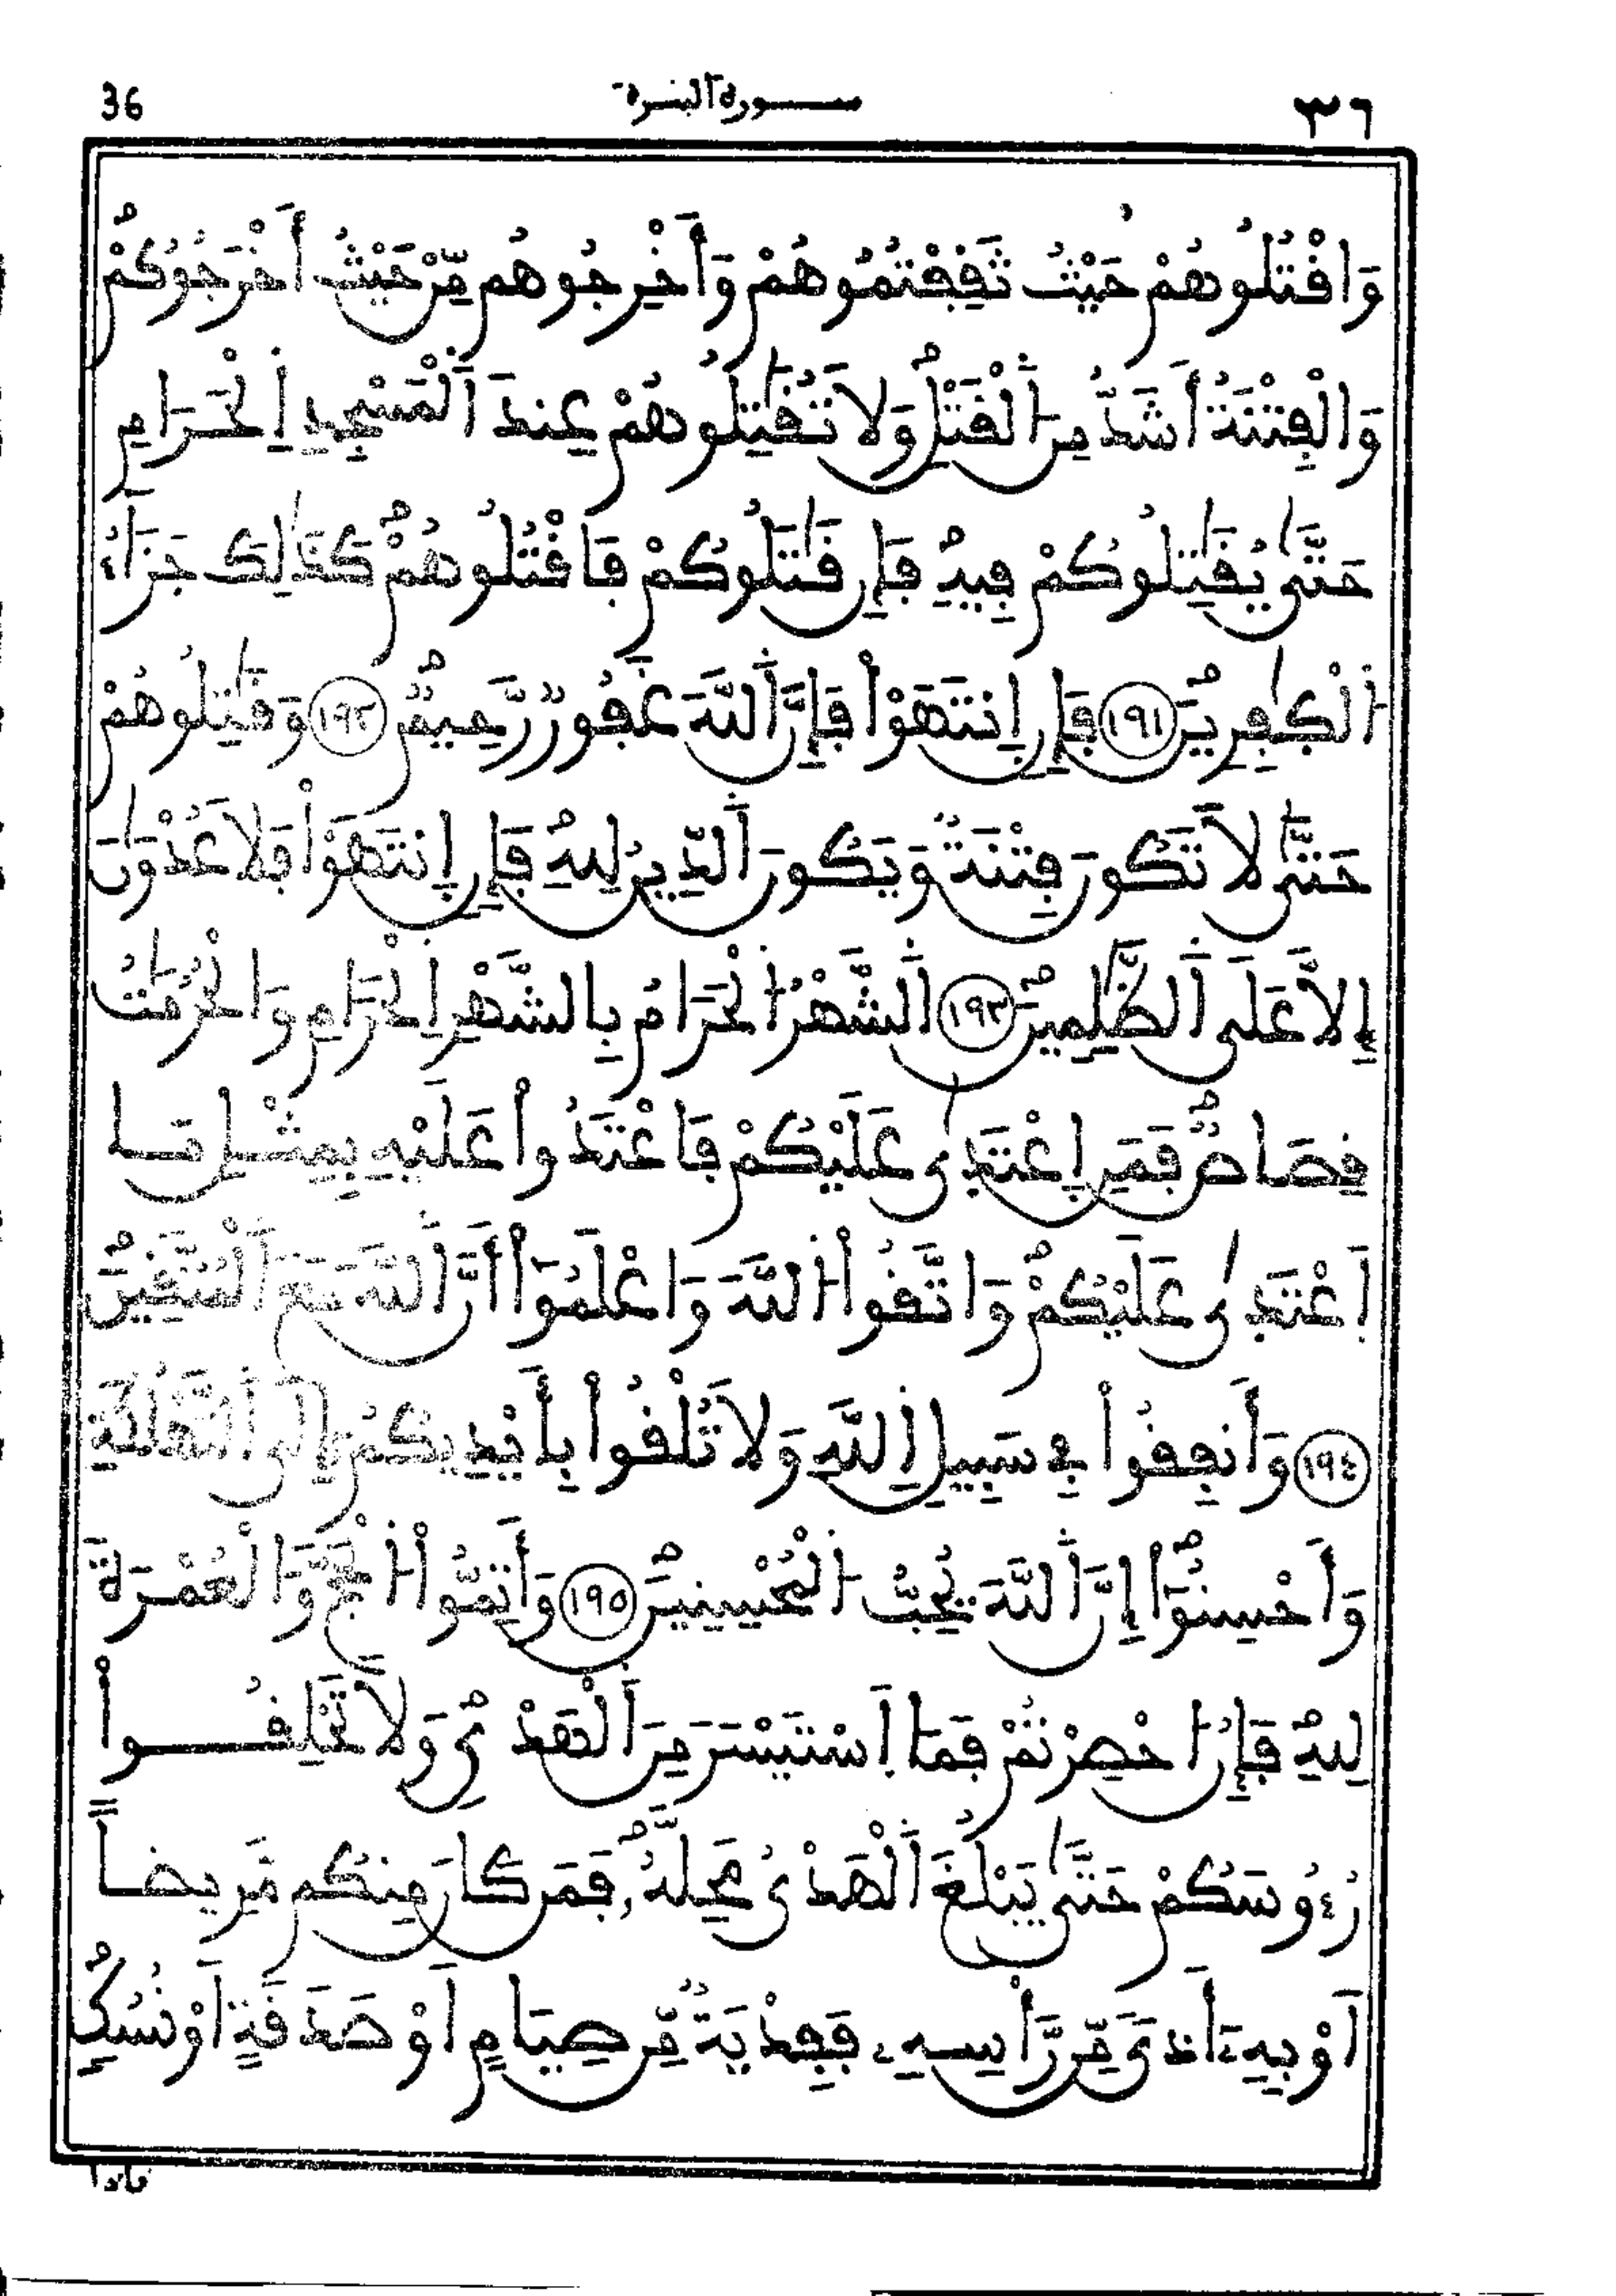 36 سورة البقرة ٣٦
وَاقْتُلُوهُمْ حَيْثُ ثَقِفْتُمُوهُمْ وَأَخْرِجُوهُم مِّنْ حَيْثُ أَخْرَجُوكُمْ
وَالْفِتْنَةُ أَشَدُّ مِنَ الْقَتْلِ وَلَا تُقَٰتِلُوهُمْ عِندَ الْمَسْجِدِ الْحَرَامِ
حَتَّىٰ يُقَٰتِلُوكُمْ فِيهِ فَإِن قَٰتَلُوكُمْ فَاقْتُلُوهُمْ كَذَٰلِكَ جَزَآءُ
الْكَٰفِرِينَ ١٩١ فَإِنِ انتَهَوْاْ فَإِنَّ اللَّهَ غَفُورٌ رَّحِيمٌ ١٩٢ وَقَٰتِلُوهُمْ
حَتَّىٰ لَا تَكُونَ فِتْنَةٌ وَيَكُونَ الدِّينُ لِلهِ فَإِنِ انتَهَوْاْ فَلَا عُدْوَٰنَ
إِلَّا عَلَى الظَّٰلِمِينَ ١٩٣ الشَّهْرُ الْحَرَامُ بِالشَّهْرِ الْحَرَامِ وَالْحُرُمَٰتُ
قِصَاصٌ فَمَنِ اعْتَدَىٰ عَلَيْكُمْ فَاعْتَدُواْ عَلَيْهِ بِمِثْلِ مَا
اَعْتَدَىٰ عَلَيْكُمْ وَاتَّقُواْ اللَّهَ وَاعْلَمُوٓاْ أَنَّ اللَّهَ مَعَ الْمُتَّقِينَ
١٩٤ وَأَنفِقُواْ فِے سَبِيلِ اللَّهِ وَلَا تُلْقُواْ بِأَيْدِيكُمْ إِلَى التَّهْلُكَةِ
وَأَحْسِنُوٓاْ إِنَّ اللَّهَ يُحِبُّ الْمُحْسِنِينَ ١٩٥ وَأَتِمُّواْ الْحَجَّ وَالْعُمْرَةَ
لِلهِ فَإِنُ احْصِرْتُمْ فَمَا اَسْتَيْسَرَ مِنَ الْهَدْيِ وَلَا تَحْلِقُواْ
رُءُوسَكُمْ حَتَّىٰ يَبْلُغَ الْهَدْيُ مَحِلَّهُۥ فَمَن كَانَ مِنكُم مَّرِيضاً
اَوْ بِهِۦٓ أَذىً مِّن رَّأْسِهِۦ فَفِدْيَةٌ مِّن صِيَامٍ اَوْ صَدَقَةٍ اَوْ نُسُكٍ
فإذا